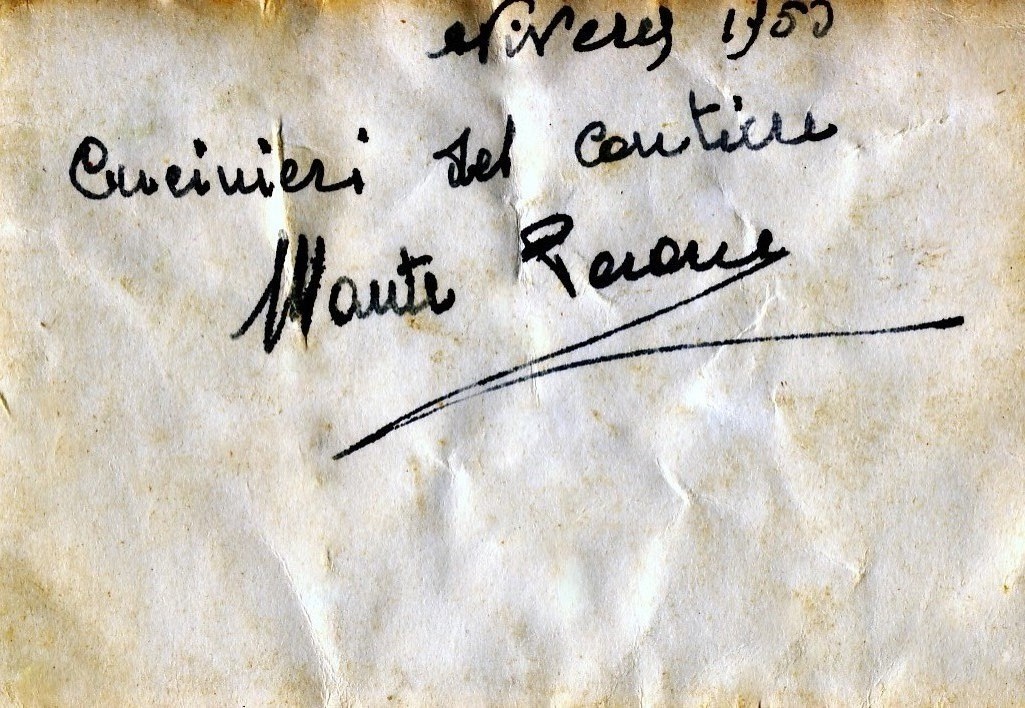 Niveres 1953
Cucinieri del cantiere
Monte Perone